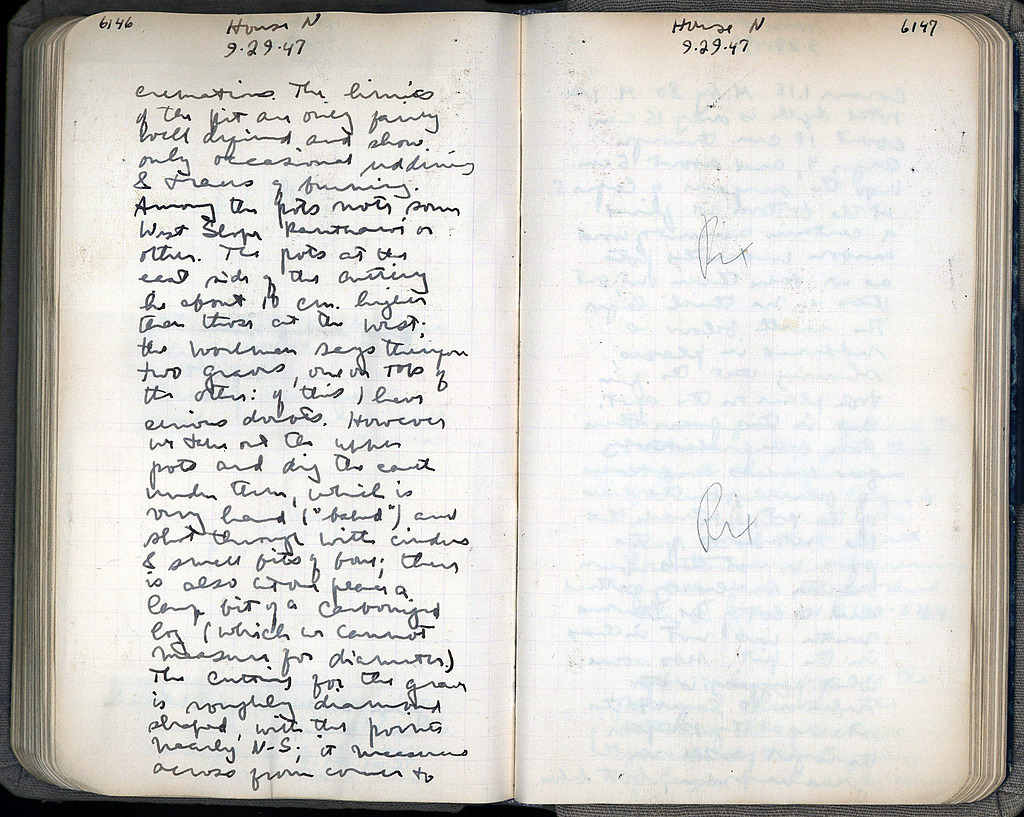 6146
House N
9.29.47
cremations. The limits
of the pit are only fairly
well defined and show
only occasional reddening
& traces of burning.
Among the pots note some
West Slope Kantharoi or
other. The pots at the
east side of the cutting
lie about 10 cm. higher
than those at the west;
the workman says there are
two graves, one on top of
the other: of this I have
serious doubts. However
we take out the upper
pots and dig the earth
under them, which is
very hard ("baked") and
shot through with cinders
& small bits of bone; there
is also at one place a
large bit of a carbonized
log (which we cannot
measure for diameter.)
The cutting for the grave
is roughly diamond
shaped, with the points
nearly N-S; it measures
across from corner to
House N
9.29.47
6147